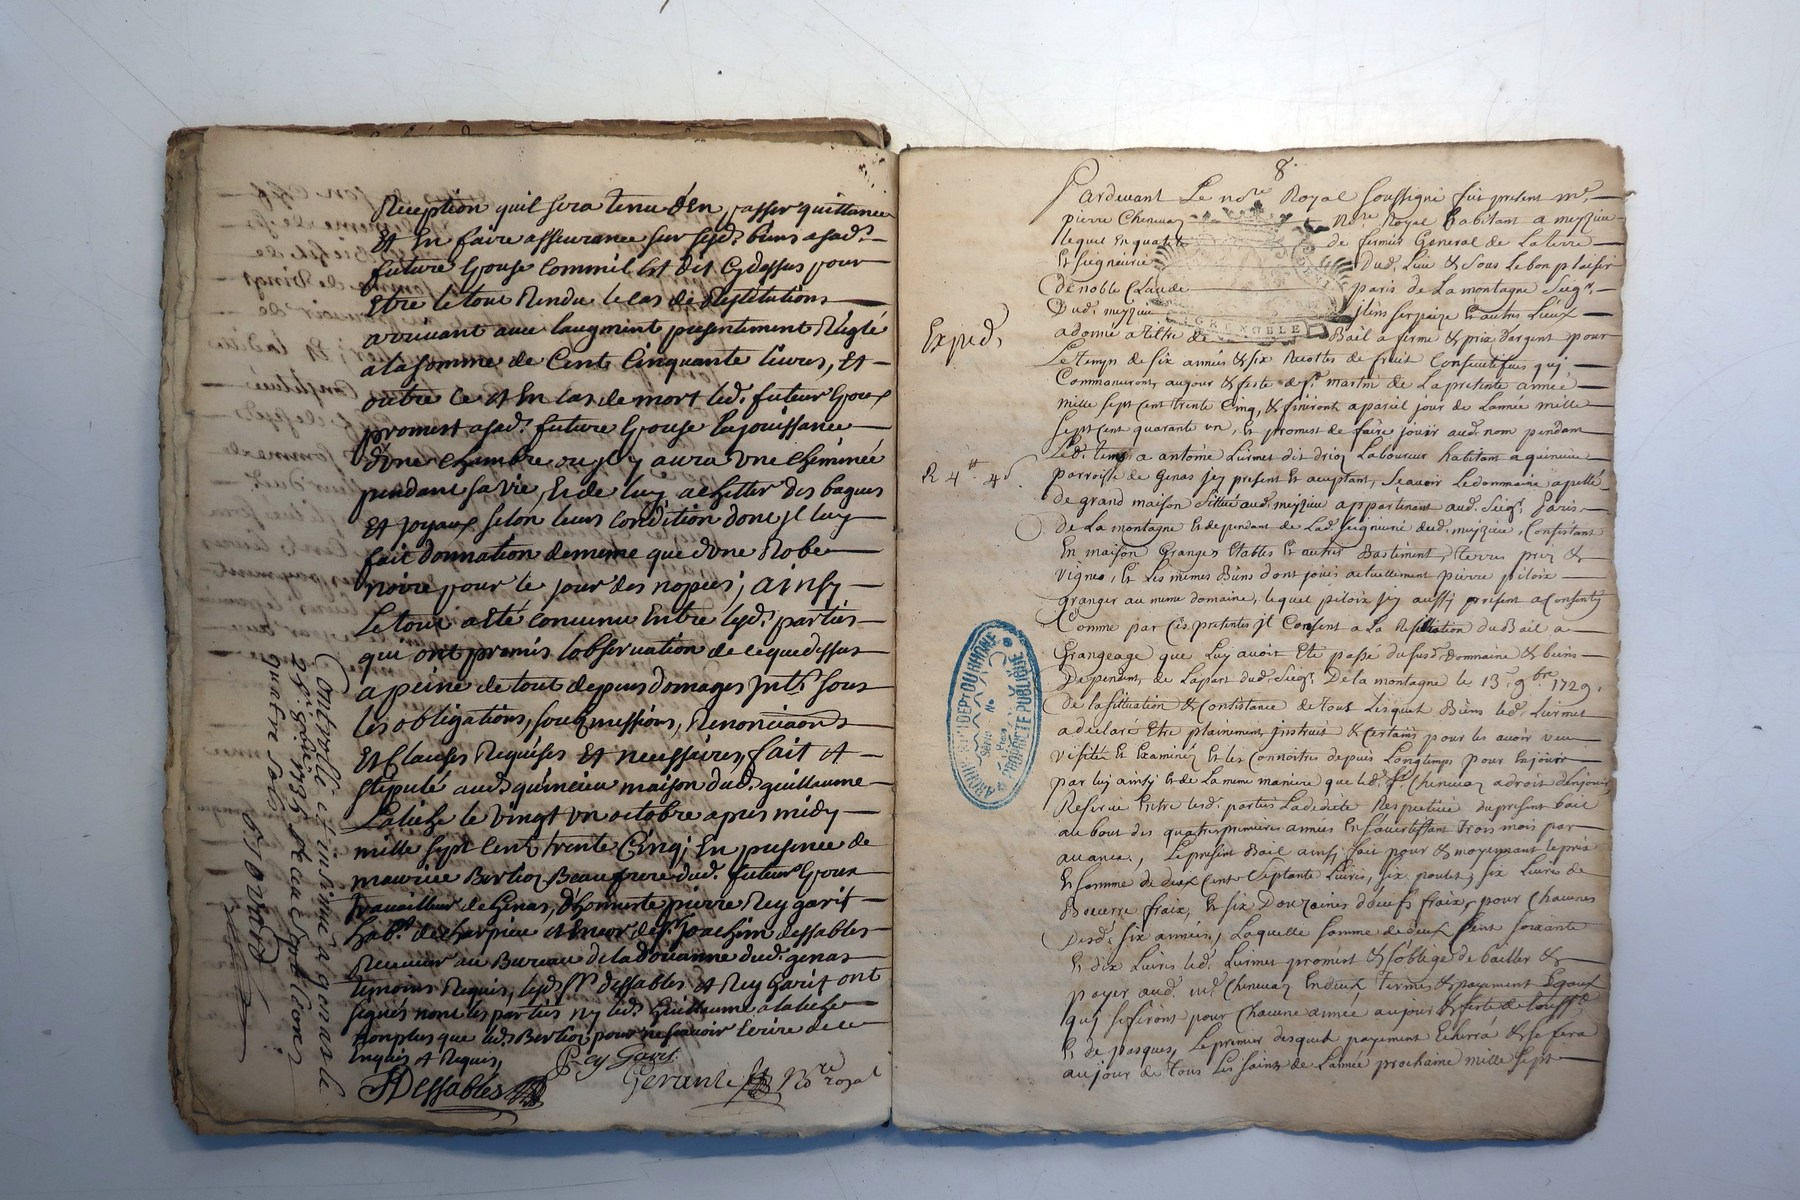 Reception quil sera tenu d'en passer quittance
Et En faire asseurance sur sesd. biens a sad.
future Epouse comm'il Est dit cydessus pour
Etre le tout Rendu le cas de Restitutions
arrivant avec laugment presentement Réglé
a la somme de Cent Cinquante livres, Et
outre ce et En cas de mort led. futeur Epoux
promest a sad. future Epouse la jouissance
d'une chambre ou jl y aura une cheminée
pendant sa vie, Et de luy achetter des bagues
Et joyaux selon leurs condition dont jl luy
fait donnation de meme que d'une Robe
noire pour le jour des nopces; ainsy
Le tout a eté convenu Entre lesd. parties
qui ont promis l'observation de ceque dessus
a peine de tout depens domages jnts. sous
les obligations, soubmissions, Renonciaons
Et Clauses Requises Et necessaires, fait et
stipulé aud. quincieu maison dud. guillaume
Labiche le vingt un octobre apres midy
mille sept cent trente Cinq; En presence de
maurice Bertion Beaufrere dud. futeur Epoux
travailleur de Genas, d'honneste pierre Rey garit
habt. de charpieu et de sr. joachim dessables
Receveur au Bureau de la douanne dud. genas
temoins Requis, lesd. srs. dessables et Rey Garit ont
signés non les parties ny led. Guillaume alabiche
nonplus que led. Bertion pour ne scavoir Ecrire de ce
Enquis et Requis,
Rey Garit
JDessables
Gerante Nore royal
Controllé et insinué a genas le
1735
quatre sols
8.
Pardevant Le nore Royal Soussigné fut present mr.
pierre Chenevaz nore. Royal habitant a meyzieu
lequel En qualité de fermier General de La terre
Et Seigneurie dud. Lieu & sous le bon plaisir
de noble Claude paris de La montagne seigr.
Dud. meyzieu et autres Lieux
GRENOBLE
a donné a tiltre de Bail a ferme & prix d'argent pour
Le temps de six années & six Recoltes de fruit Consecutifves qui
Commanceront au jour & feste de st. martin de La presente année
mille sept cent trente Cinq, & finiront a pareil jour de L'année mille
sept cent quarante un, Et promest de faire jouir aud. nom pendant
Led. temps a antoine Lurmet dit driou Laboureur habitant a quincieu
parroisse de Genas jcy present Et acceptant, sçavoir Le dommaine apellé
de grand maison Sittué aud. meyzieu appartenant aud. seigr. Paris
de La montagne Et dependant de Lad. Seigneurie dud. meyzieu, Consistant
En maison Granges Etables Et autres Bastiment, terres prez &
vignes, Et Les mêmes Biens dont jouit actuellement pierre piloix
granger au meme domaine, lequel piloix jcy aussy présent a Consenty
Comme par Ces presentes jl Consent a La Resiliation du Bail a
Grangeage que Luy avoit Eté passé du susd. Dommaine & biens
Dependents de Lapart dud. seigr. De la montagne le 13e. 9bre 1729.
de la sittuation & Consistance de tous Lesquels Biens led. Lurmet
a declaré Etre plainement jnstruit & certain pour les avoir veu
visité Et Examinéz Et les Connoitre depuis Longtemps pour En jouir
par luy ainsy Et de La meme maniere que led. sr. Chenevaz a droit d'en jouir
Reserve Entre lesd. parties La dedicte Respective du present bail
au bout des quatre premieres années En s'avertissant trois mois par
avance, Le present Bail ainsy fait pour & moyennant le prix
Et somme de deux Cents septante Livres, six poulets, six Livres de
Beurre fraix, Et six Douzaines d'oeufs fraix, pour Chacunes
Desd. six années, Laquelle somme de deux Cent soixante
Et dix Livres led. Lurmet promest & s'oblige de bailler &
payer aud. mr. Chenevaz En deux termes & payement Egaux
quj se feront pour Chacune année au jour & feste de toussts.
Et de pasques, Le premier desquels payement Echerrá & se fera
au jour de tous Les saints de L'année prochaine mille sept
Exped.
R 4tt 4s
ARCHIVES DU DEPt DU RHONE
Série
No
PROPRIÉTÉ PUBLIQUE